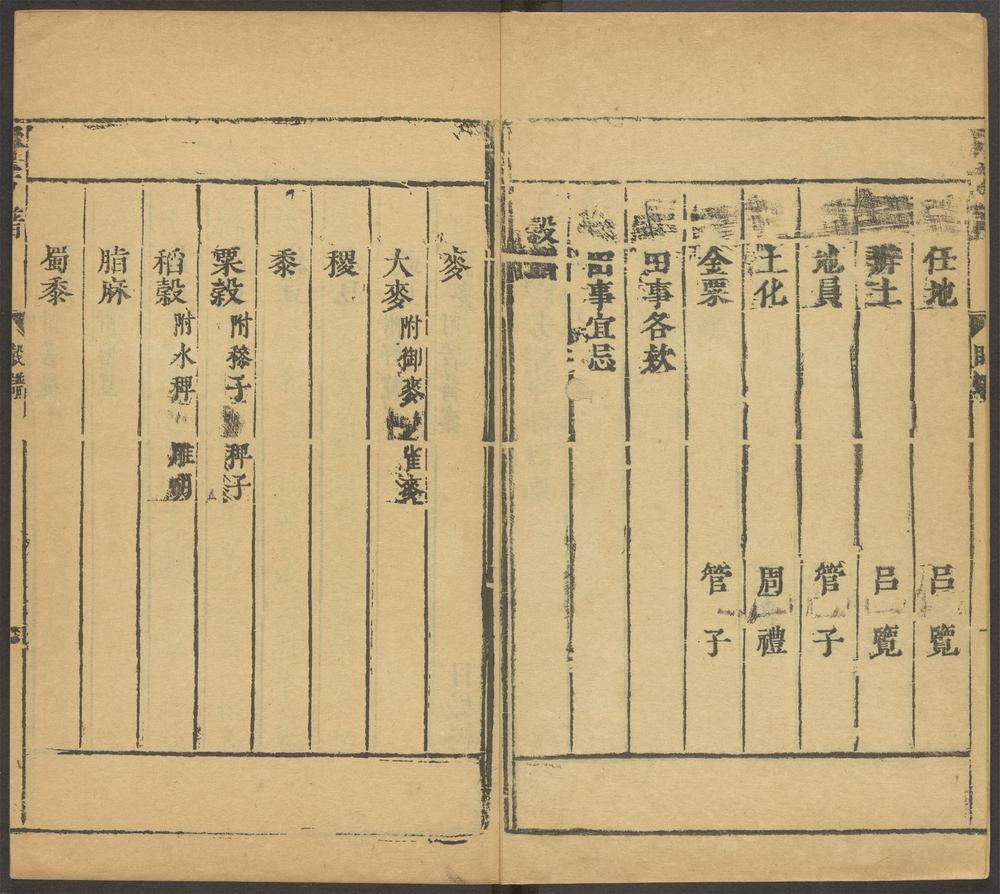 任地 呂覽
辯土 呂覽
地員 管子
土化 周禮
金粟 管子
田事各欵
田事宜忌
穀
麥
大麥 附御麥 雀麥
稷
黍
粟穀 附穇子 稗子
稻穀 附水稗 雕胡
脂麻
蜀黍
穀譜